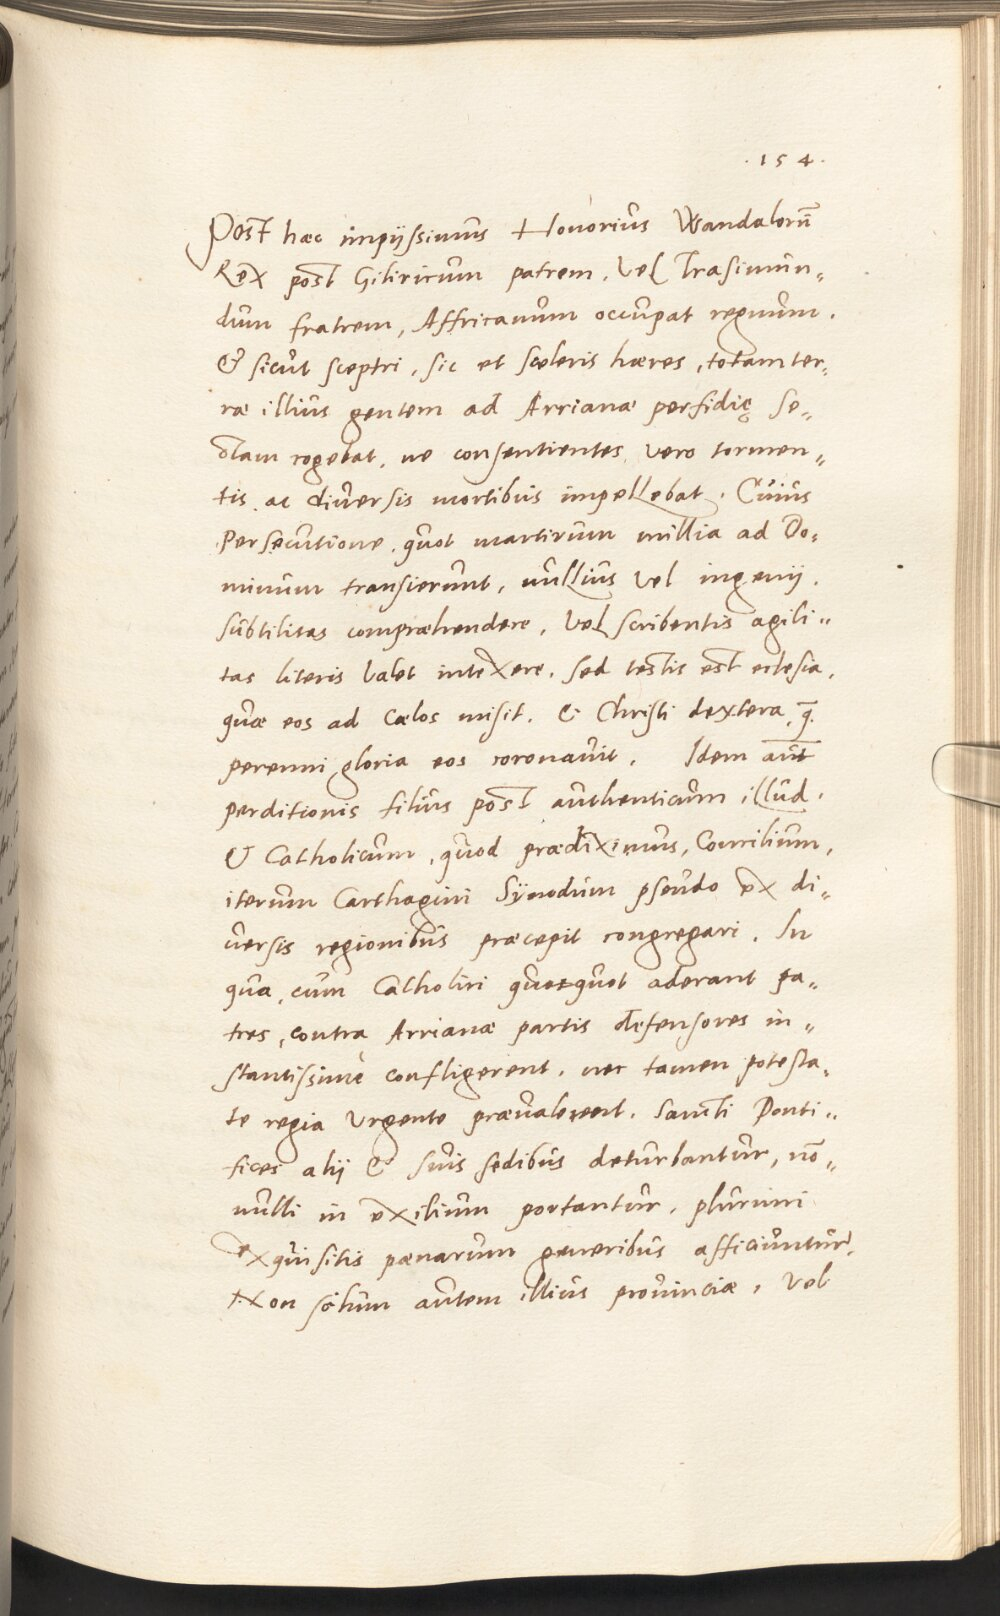 .154.
Post hæc impijssimus Honorius Wandalorū
Rex post Gitiricum patrem, Vel Trasimun„
dum fratrem, Affricanum occupat regnum.
& sicut sceptri, sic et sceleris hæres, totam ter„
ræ illius gentem ad Arrianæ perfidię se„
ctam cogebat, ne consentientes vero tormen„
tis ac diversis mortibus impellebat. Cuius
persecutione, quot martirum millia ad Do„
minum transierunt, nullius vel ingenij
subtilitas compræhendere, Vel scribentis agili„
tas literis valet intexere. sed testis est eclesia,
quæ eos ad Cælos misit. & Christi dextera, q̄
perenni gloria eos coronavit. Idem aūt
perditionis filius post authenticum illud,
& Catholicum, quod prædiximus, Concilium,
iterum Carthagini Synodum pseudo ex di„
versis regionibus præcepit congregari. In
qua, cum Catholici quotquot aderant pa„
tres, contra Arrianæ partis defensores in„
stantissimè confligerent, nec tamen potesta„
te regia Urgente prævalerent. Sancti Ponti„
fices alij & suis sedibus deturbantur, nō„
nulli in exilium portantur, plurimi
exquisitis pænarum generibus afficiuntur.
Non solum autem illius provinciæ, Vel